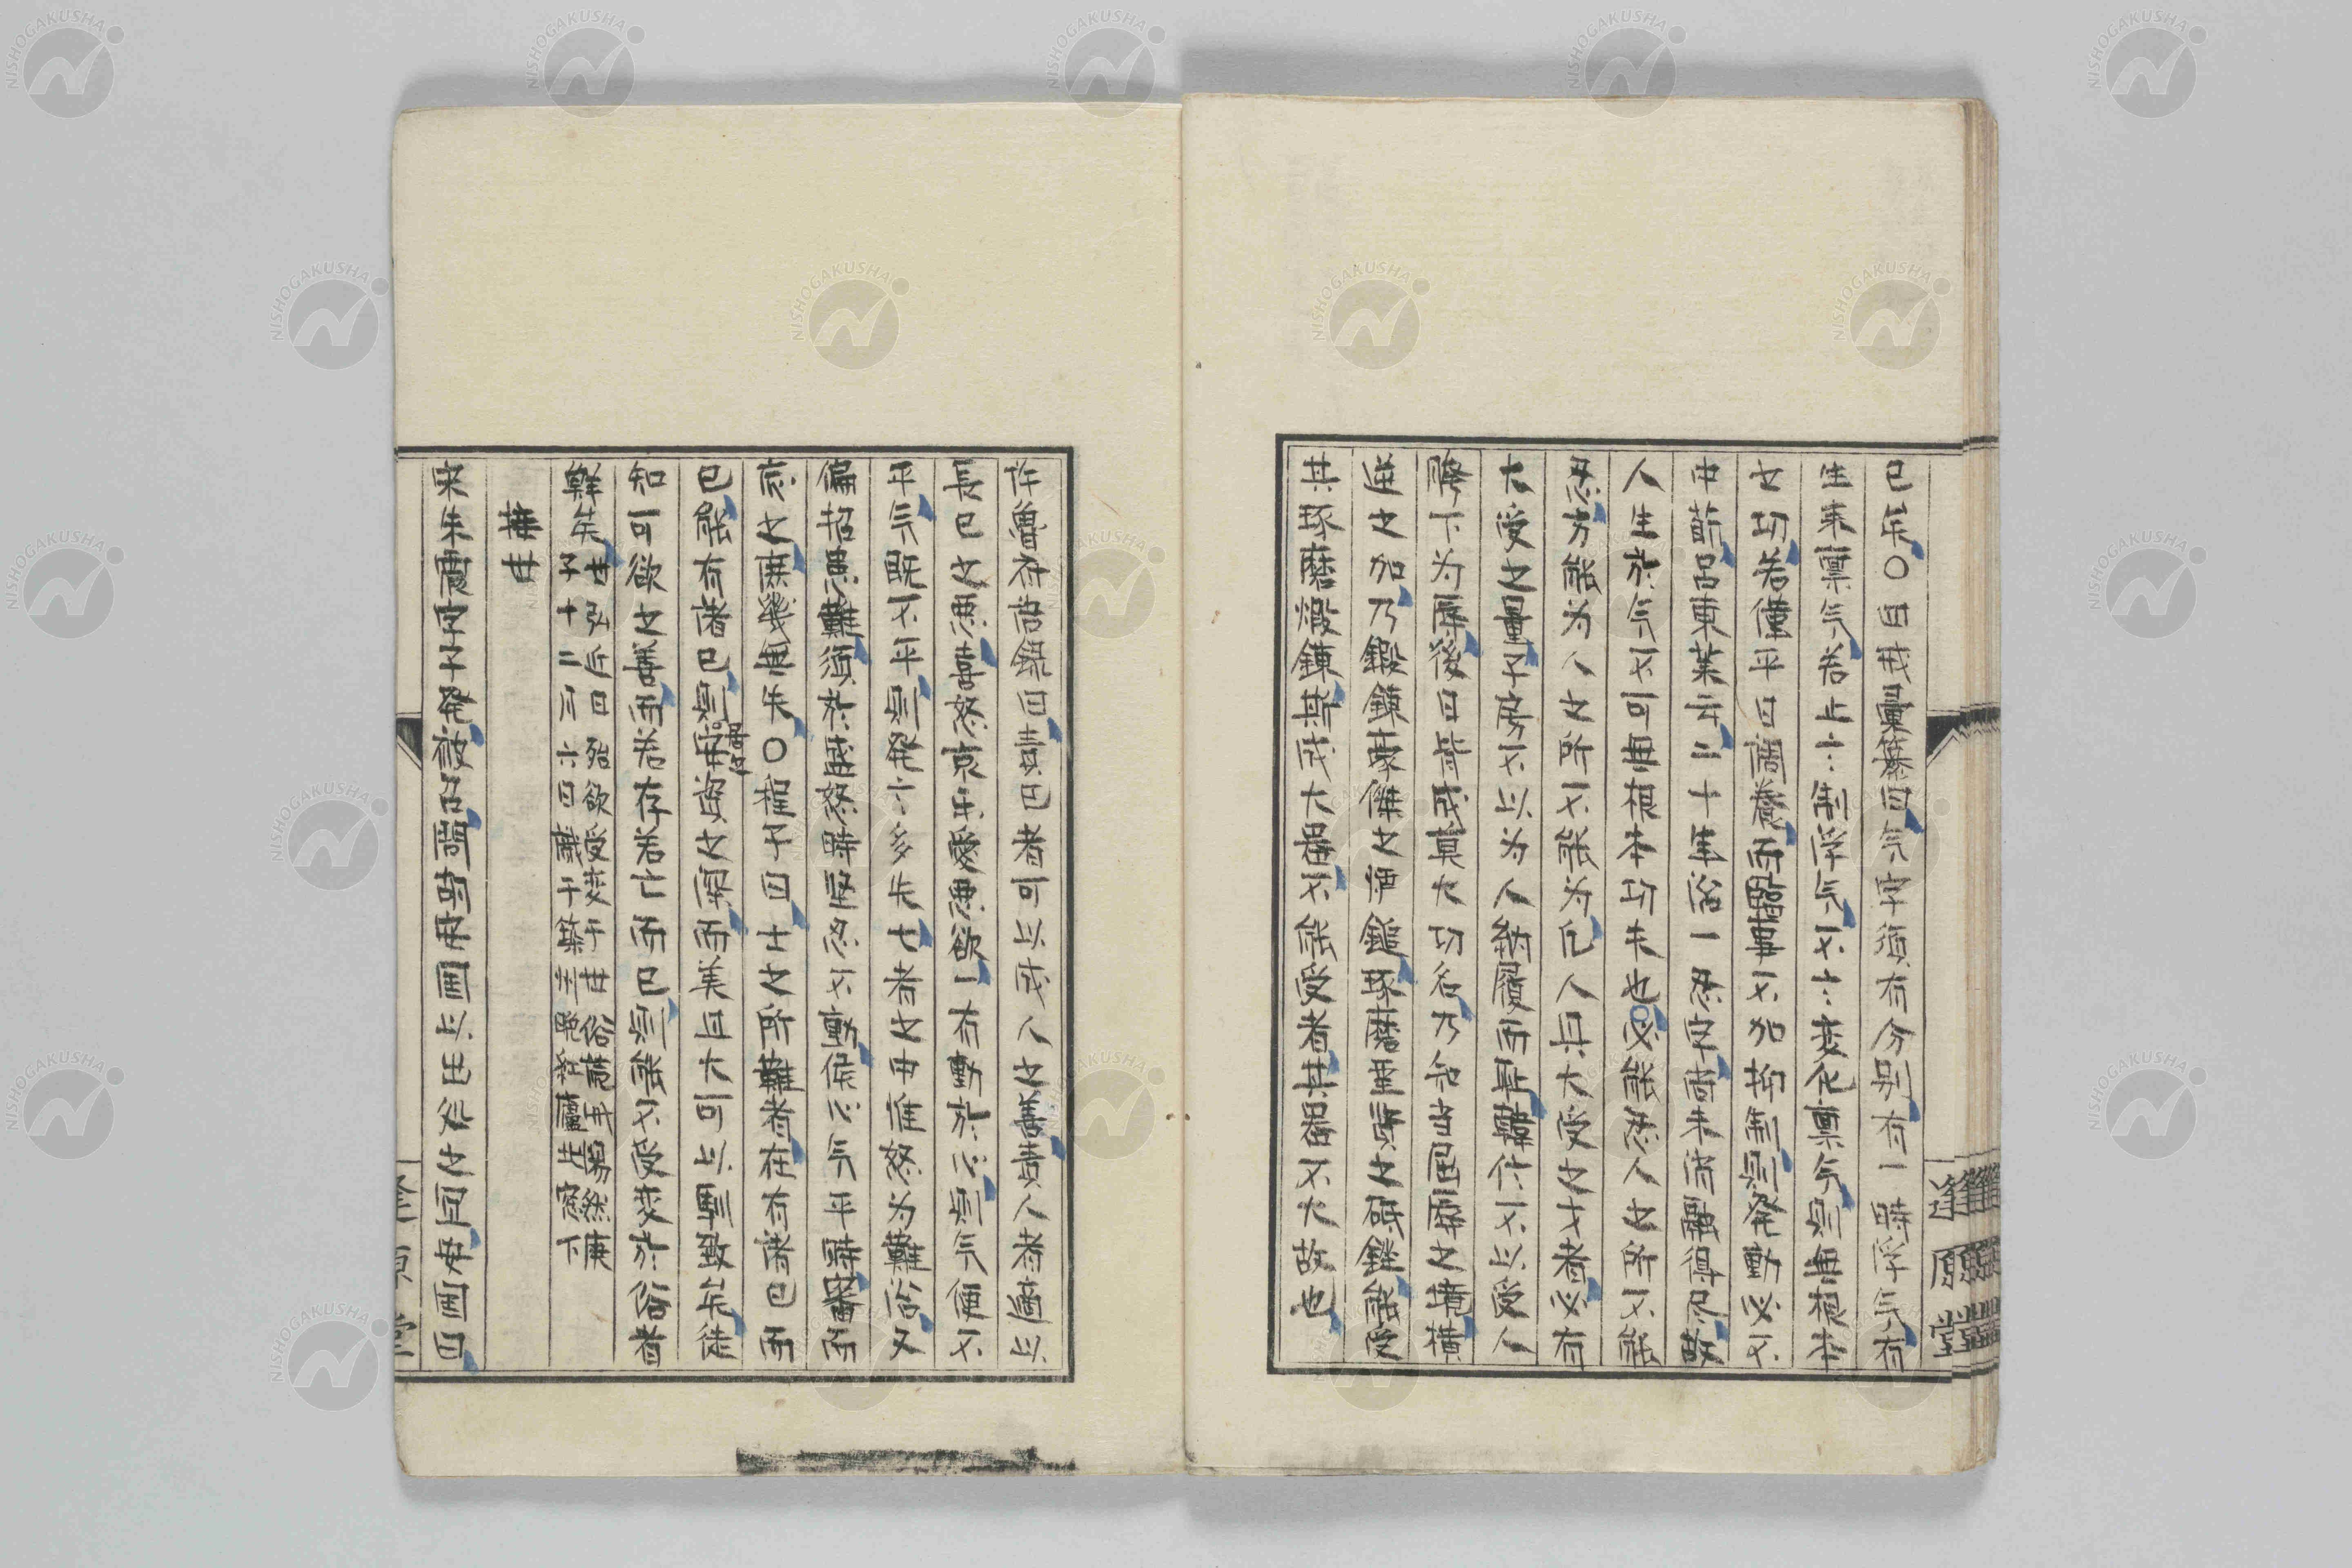 已矣〇四戒彙纂曰气字須有分別有一時浮气有
生来稟气若止六制浮气不六変化稟气則無根本
之功若僅平日調養而臨事不加抑制則発動必不
中節呂東莱云二十年治一忍字尚未消融得尽故
人生於气不可無根本功夫也必能忍人之所不能
忍方能为人之所不能为凡人具大受之才者必有
大受之量子房不以为人納履而耻韓信不以受人
胯下为辱後日皆成莫大功名乃知当屈辱之境横
逆之加乃鍛錬豪傑之炉鎚琢磨聖賢之砥錯能受
其琢磨煅錬斯成大器不能受者其器不大故也
許魯斎語録曰責己者可以成人之善責人者適以
長己之悪喜怒哀楽愛悪欲一有動於心則气便不
平气既不平則発言多失七者之中惟怒为難治又
偏招患難須於盛怒時堅忍不動候心气平時審而
忘之庶幾無失〇程子曰士之所難者在有諸己而
已能有諸己則居之安資之深而美且大可以馴致矣徒
知可欲之善而若存若亡而已則能不受変於俗者
鮮矣
世弘近日殆欲受変于世俗荒毋惕然庚
子十二月六日識于築州晩紅廬𠀋窓下
華世
宋朱震字子発被召問胡安国以出処之宜安国曰
逢原堂